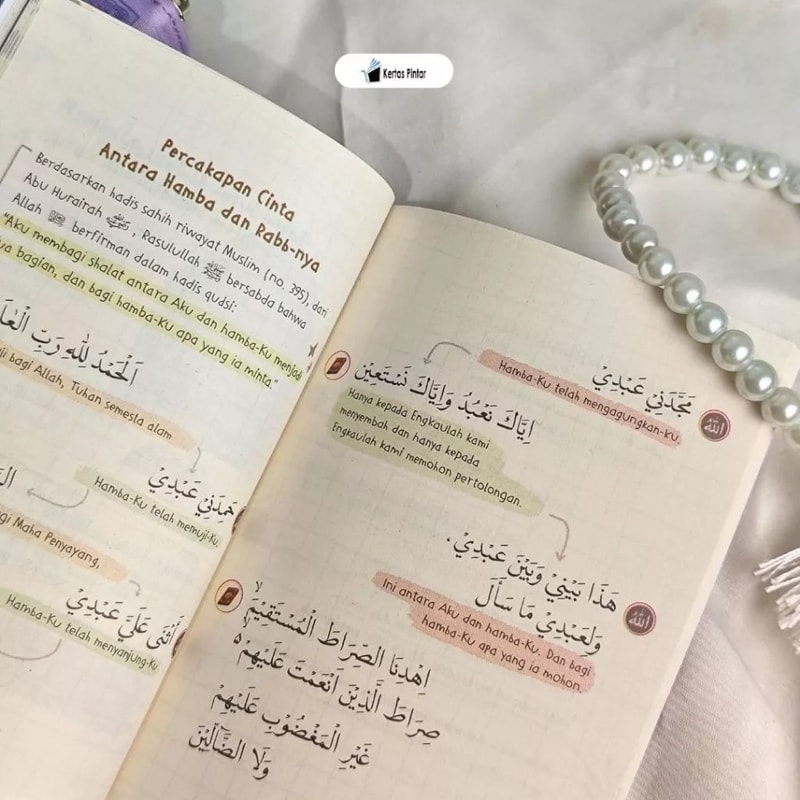 Kertas Pintar
Percakapan Cinta
Antara Hamba dan Rabb-nya
Berdasarkan hadis sahih riwayat Muslim (no. 395), dari
Abu Hurairah, Rasulullah ﷺ bersabda bahwa
Allah ﷻ berfirman dalam hadis qudsi:
"Aku membagi shalat antara Aku dan hamba-Ku menjadi
bagian, dan bagi hamba-Ku apa yang ia minta."
اَلْحَمْدُ لِلّٰهِ رَبِّ
bagi Allah, Tuhan semesta alam
حَمِدَنِيْ عَبْدِيْ
Hamba-Ku telah memuji-Ku.
Maha Penyayang,
أَثْنَى عَلَيَّ عَبْدِيْ
Hamba-Ku telah menyanjung-Ku
مَجَّدَنِي عَبْدِيْ
Hamba-Ku telah mengagungkan-Ku.
الله
اِيَّاكَ نَعْبُدُ وَاِيَّاكَ نَسْتَعِيْن
Hanya kepada Engkaulah kami
menyembah dan hanya kepada
Engkaulah kami memohon pertolongan.
هَذَا بَيْنِيْ وَبَيْنَ عَبْدِيْ.
وَلِعَبْدِيْ مَا سَأَلَ
الله
Ini antara Aku dan hamba-Ku. Dan bagi
hamba-Ku apa yang ia mohon.
اِهْدِنَا الصِّرَاطَ الْمُسْتَقِيْمَ
صِرَاطَ الَّذِيْنَ اَنْعَمْتَ عَلَيْهِمْ
غَيْرِ الْمَغْضُوْبِ عَلَيْهِمْ
وَلَا الضَّاۤلِّيْنَ